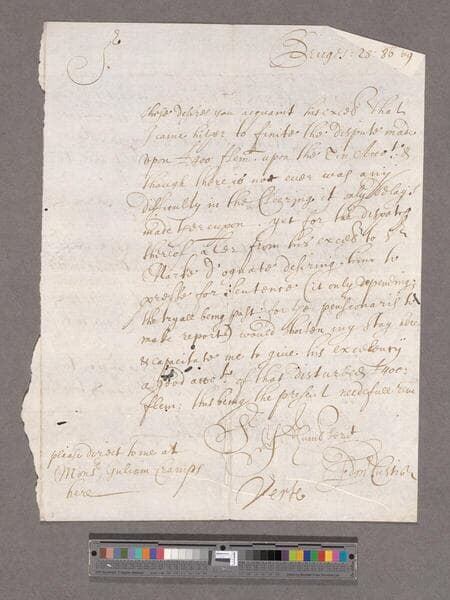 Sr
Bruges: 28
these desires you acquaint his Excel that
I came hither to finite the dispute made
upon £400 flem upon the Tin Acco.t &
though there is not ever was any
difficulty in the Clearing it only delays
made thereupon yet for the dispatch
thereof a Ler from his Excel to Sr
Marke D'ognate desiring him to
presse for sentence (it only depending;
the tryall being past: for ye pensionaris to
make report) would shorten my stay here
& capacitate me to give his Excellency
a good acco.t of that disturbed £400:
flem: this being the present needefull I rem
Sr
Yr Humb Servt
please direct to me at
Mons.r Guliam Cramps
here
Verte